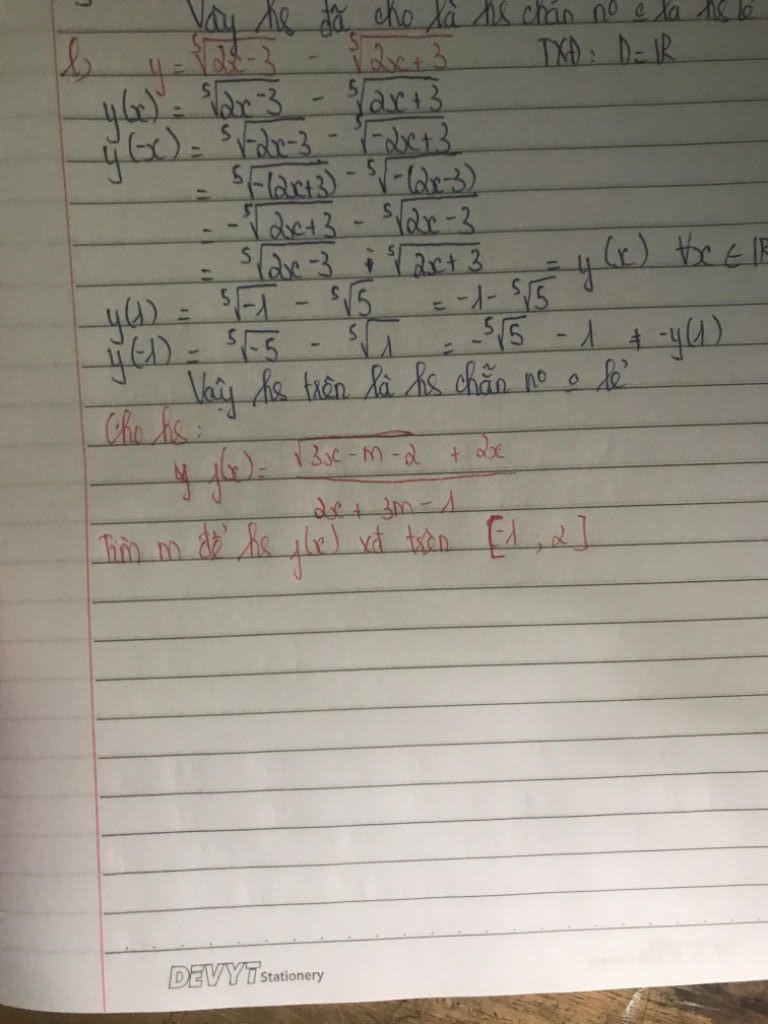 Vậy hs đã cho là hs chẵn nº là hs lẻ
b, y = ⁵√2x-3 - ⁵√2x+3 TXĐ: D=ℝ
y(x) = ⁵√2x-3 - ⁵√2x+3
y(-x) = ⁵√-2x-3 - ⁵√-2x+3
= ⁵√-(2x+3) - ⁵√-(2x-3)
= -⁵√2x+3 - ⁵√2x-3
= ⁵√2x-3 + ⁵√2x+3 = y(x) ∀x ∈ ℝ
y(1) = ⁵√-1 - ⁵√5 = -1-⁵√5
y(-1) = ⁵√-5 - ⁵√1 = -⁵√5 - 1 ≠ -y(1)
Vậy hs trên là hs chẵn nº o lẻ
Cho hs:
y f(x) = √3x-m-2 + 2x
2x + 3m - 1
Tìm m để hs f(x) xđ trên [-1, 2]
DEVYT Stationery